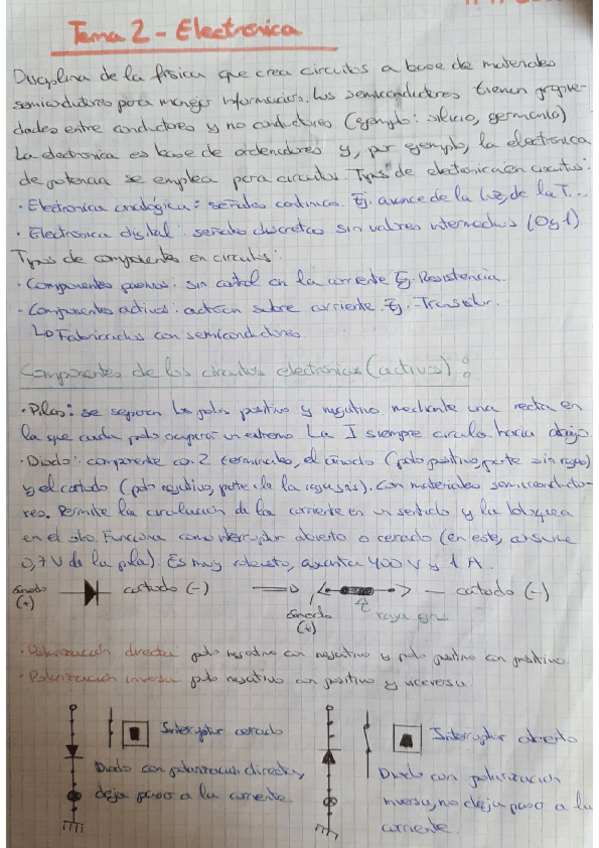 Tema 2 - Electronica
Disciplina de la física que crea circuitos a base de materiales
semiconductores para manejar información. Los semiconductores tienen propie-
dades entre conductores y no conductores (ejemplo: silicio, germanio)
La electronica es base de ordenadores y, por ejemplo, la electronica
de potencia se emplea para circuitos. Tipos de electronica en circuitos:
· Electronica analógica: señales continuas. Ej. avance de la luz, de la T...
· Electronica digital: señales discretas sin valores intermedios (0 y 1)
Tipos de componentes en circuitos:
· Componentes pasivos: sin control en la corriente Ej. Resistencia.
· Componentes activos: actúan sobre corriente. Ej. Transistor.
↳ Fabricados con semiconductores
Componentes de los circuitos electronicos (activos):
· Pilas: se separan los polos positivo y negativo mediante una recta en
la que cada polo ocupará un extremo. La I siempre circula hacia abajo.
· Diodo: componente con 2 terminales, el ánodo (polo positivo, parte sin rayas)
y el cátodo (polo negativo, parte de la raya gris). Con materiales semiconducto-
res. Permite la circulación de la corriente en un sentido y la bloquea
en el otro. Funciona como interruptor abierto o cerrado (en este, consume
0,7 V de la pila). Es muy robusto, aguanta 400 V y 1 A.
ánodo (+) cátodo (-) cátodo (-)
ánodo (+) raya gris
· Polarización directa polo negativo con negativo y polo positivo con positivo.
· Polarización inversa polo negativo con positivo y viceversa.
Interruptor cerrado
Diodo con polarización directa,
deja paso a la corriente.
Interruptor abierto
Diodo con polarización
inversa, no deja paso a la
corriente.